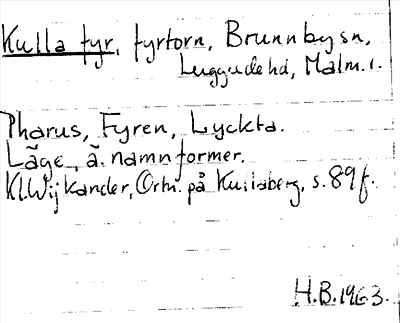 Kulla fyr, fyrtorn, Brunnby sn,
Luggude hd, Malm. l.
Pharus, Fyren, Lyckta.
Läge, ä. namnformer.
Kl. Wijkander, Ortn. på Kullaberg, s. 89 f.
H.B. 1963.